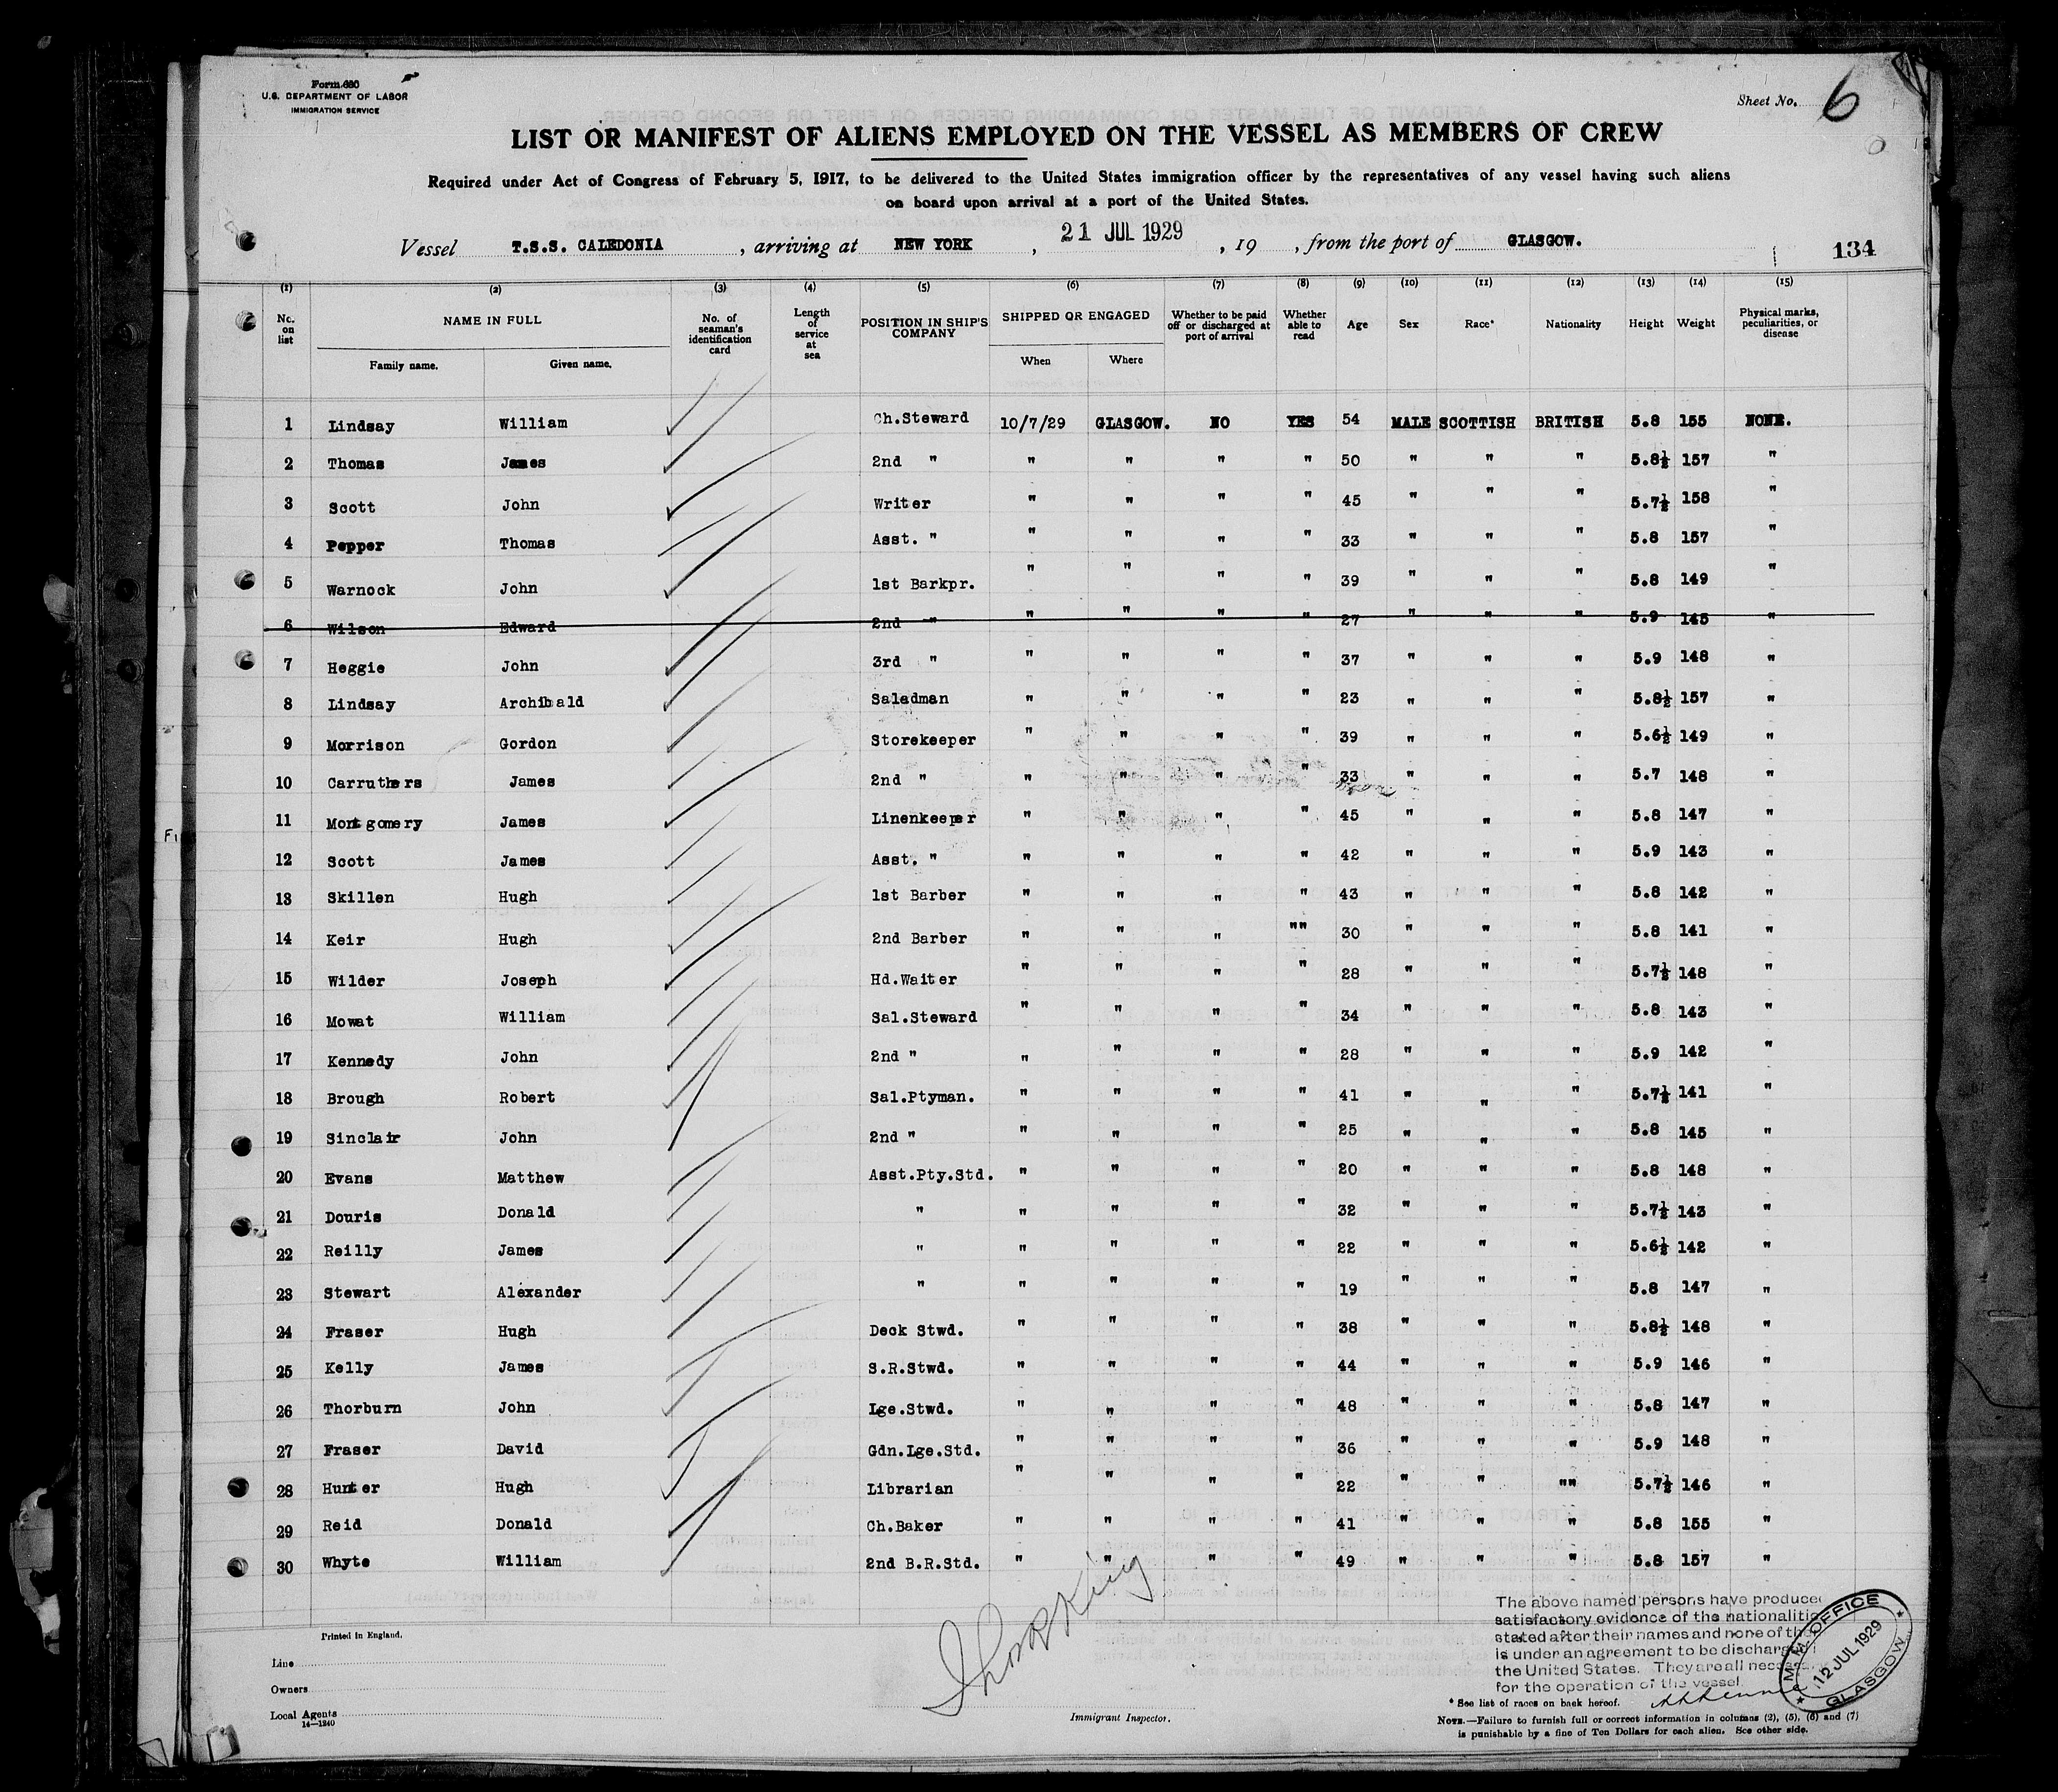 Form 680
U.S. DEPARTMENT OF LABOR
IMMIGRATION SERVICE
Sheet No. 6
LIST OR MANIFEST OF ALIENS EMPLOYED ON THE VESSEL AS MEMBERS OF CREW
Required under Act of Congress of February 5, 1917, to be delivered to the United States immigration officer by the representatives of any vessel having such aliens
on board upon arrival at a port of the United States.
Vessel T.S.S. CALEDONIA , arriving at NEW YORK , 21 JUL 1929 , 19 , from the port of GLASGOW.
134
(1) (2) (3) (4) (5) (6) (7) (8) (9) (10) (11) (12) (13) (14) (15)
No. on list NAME IN FULL Family name. Given name. No. of seaman's identification card Length of service at sea POSITION IN SHIP'S COMPANY SHIPPED OR ENGAGED When Where Whether to be paid off or discharged at port of arrival Whether able to read Age Sex Race* Nationality Height Weight Physical marks, peculiarities, or disease
1 Lindsay William Ch.Steward 10/7/29 GLASGOW. NO YES 54 MALE SCOTTISH BRITISH 5.8 155 NONE.
2 Thomas James 2nd " " " " " 50 " " " 5.8½ 157 "
3 Scott John Writer " " " " 45 " " " 5.7½ 158 "
4 Pepper Thomas Asst. " " " " " 33 " " " 5.8 157 "
5 Warnock John 1st Barkpr. " " " " 39 " " " 5.8 149 "
6 Wilson Edward 2nd " " " " " 27 " " " 5.9 145 "
7 Heggie John 3rd " " " " " 37 " " " 5.9 148 "
8 Lindsay Archibald Saladman " " " " 23 " " " 5.8½ 157 "
9 Morrison Gordon Storekeeper " " " " 39 " " " 5.6½ 149 "
10 Carruthers James 2nd " " " " " 33 " " " 5.7 148 "
11 Montgomery James Linenkeeper " " " " 45 " " " 5.8 147 "
12 Scott James Asst. " " " " " 42 " " " 5.9 143 "
13 Skillen Hugh 1st Barber " " " " 43 " " " 5.8 142 "
14 Keir Hugh 2nd Barber " " " "" 30 " " " 5.8 141 "
15 Wilder Joseph Hd.Waiter " " " " 28 " " " 5.7½ 148 "
16 Mowat William Sal.Steward " " " " 34 " " " 5.8 143 "
17 Kennedy John 2nd " " " " " 28 " " " 5.9 142 "
18 Brough Robert Sal.Ptyman. " " " " 41 " " " 5.7½ 141 "
19 Sinclair John 2nd " " " " " 25 " " " 5.8 145 "
20 Evans Matthew Asst.Pty.Std. " " " " 20 " " " 5.8 148 "
21 Douris Donald " " " " " 32 " " " 5.7½ 143 "
22 Reilly James " " " " " 22 " " " 5.6½ 142 "
23 Stewart Alexander " " " " " 19 " " " 5.8 147 "
24 Fraser Hugh Deck Stwd. " " " " 38 " " " 5.8½ 148 "
25 Kelly James S.R.Stwd. " " " " 44 " " " 5.9 146 "
26 Thorburn John Lge.Stwd. " " " " 48 " " " 5.8 147 "
27 Fraser David Gdn.Lge.Std. " " " " 36 " " " 5.9 148 "
28 Hunter Hugh Librarian " " " " 22 " " "" 5.7½ 146 "
29 Reid Donald Ch.Baker " " " " 41 " " " 5.8 155 "
30 Whyte William 2nd B.R.Std. " " " " 49 " " " 5.8 157 "
Printed in England.
Line
Owners
Local Agents
14—1240
Immigrant Inspector.
The above named persons have produced
satisfactory evidence of the nationalitie
stated after their names and none of the
is under an agreement to be discharg
the United States. They are all necess
for the operation of the vessel
M.M. OFFICE
12 JUL 1929
GLASGOW
* See list of races on back hereof.
NOTE.—Failure to furnish full or correct information in columns (2), (5), (6) and (7)
is punishable by a fine of Ten Dollars for each alien. See other side.